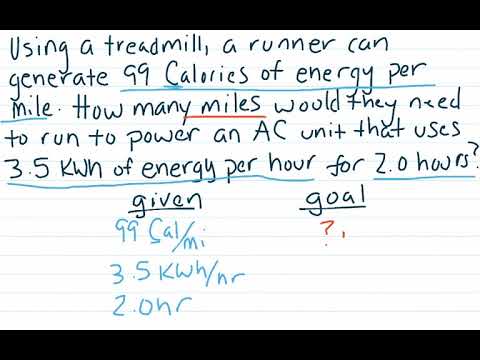 Using a treadmill, a runner can
generate 99 Calories of energy per
mile. How many miles would they need
to run to power an AC unit that uses
3.5 KWh of energy per hour for 2.0 hours?
given goal
99 Cal/mi ?
3.5 KWh/hr
2.0hr